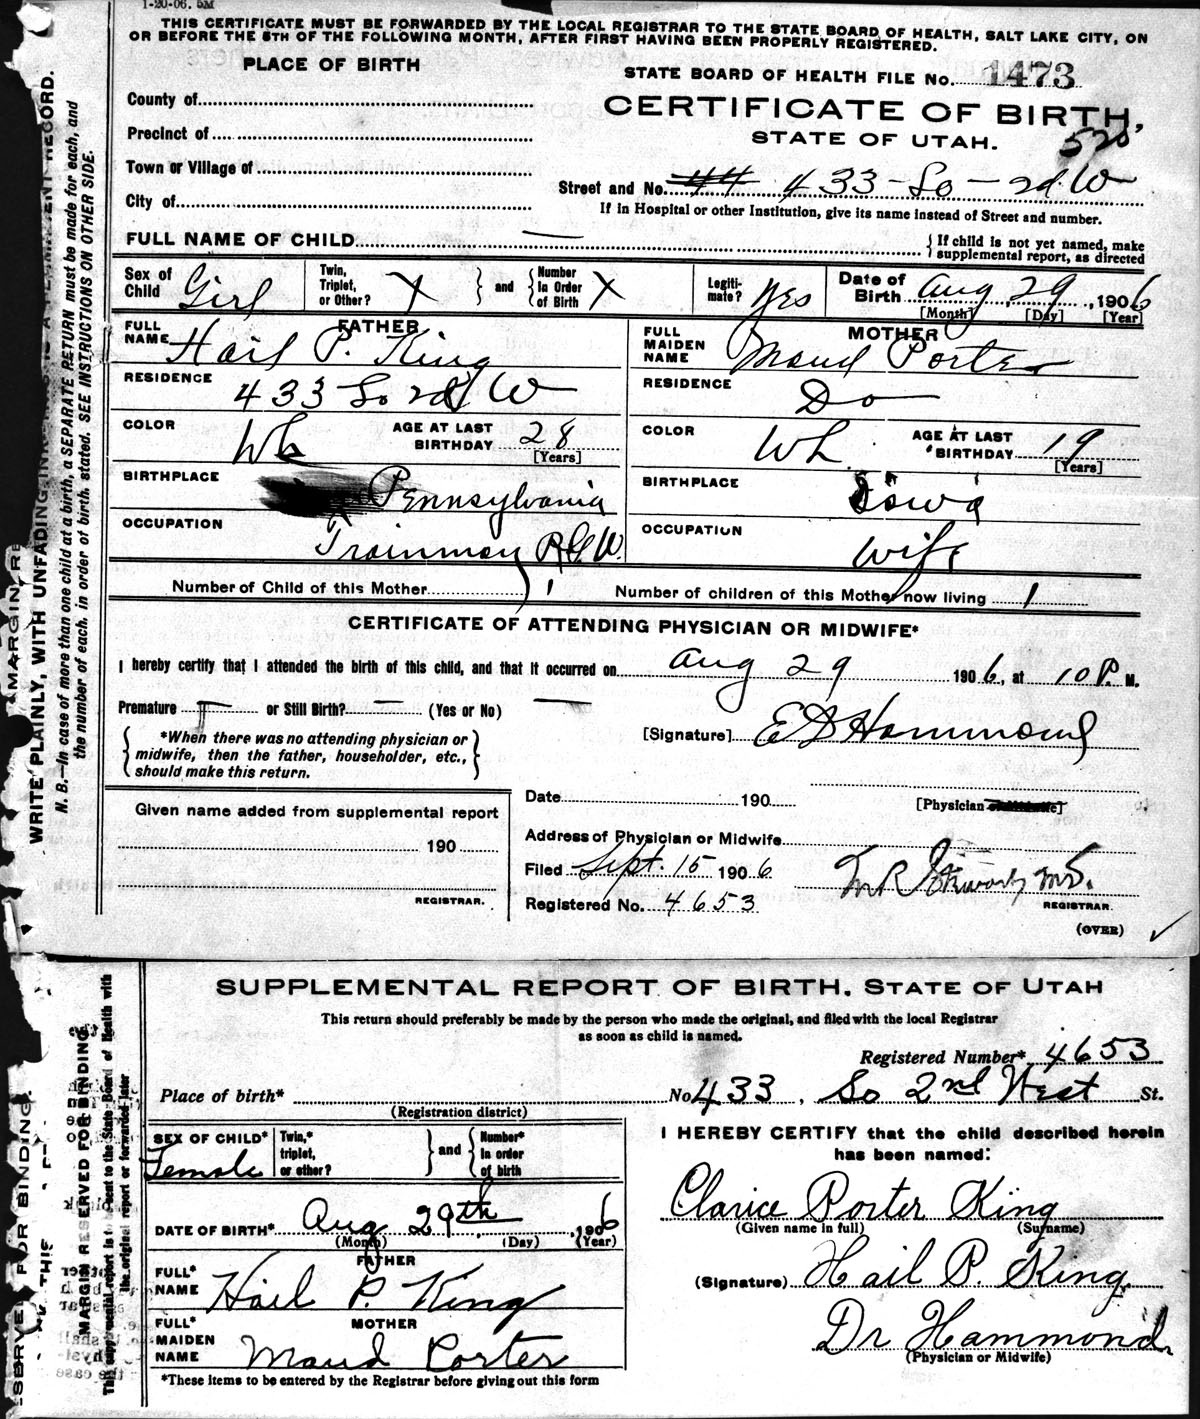 1-20-06. 5M
THIS CERTIFICATE MUST BE FORWARDED BY THE LOCAL REGISTRAR TO THE STATE BOARD OF HEALTH, SALT LAKE CITY, ON
OR BEFORE THE 5TH OF THE FOLLOWING MONTH, AFTER FIRST HAVING BEEN PROPERLY REGISTERED.
PLACE OF BIRTH
STATE BOARD OF HEALTH FILE No. 1473
County of
CERTIFICATE OF BIRTH,
Precinct of
STATE OF UTAH.
520
Town or Village of
Street and No. 44 433 - So - 2d W
City of
If in Hospital or other Institution, give its name instead of Street and number.
FULL NAME OF CHILD —
If child is not yet named, make
supplemental report, as directed
Sex of Child Girl
Twin, Triplet, or Other? X
and
Number In Order of Birth X
Legiti-mate? Yes
Date of Birth Aug 29, 1906
[Month] [Day] [Year]
FATHER
FULL NAME Hail P. King
MOTHER
FULL MAIDEN NAME Maud Porter
RESIDENCE 433 So 2d W
RESIDENCE Do
COLOR Wh
AGE AT LAST BIRTHDAY 28
[Years]
COLOR Wh.
AGE AT LAST BIRTHDAY 19
[Years]
BIRTHPLACE Pennsylvania
BIRTHPLACE Iowa
OCCUPATION Trainman R.G.W.
OCCUPATION Wife
Number of Child of this Mother 1
Number of children of this Mother now living 1
CERTIFICATE OF ATTENDING PHYSICIAN OR MIDWIFE*
I hereby certify that I attended the birth of this child, and that it occurred on Aug 29 1906, at 10 P. M.
Premature — or Still Birth? — (Yes or No) —
*When there was no attending physician or
midwife, then the father, householder, etc.,
should make this return.
[Signature] E D Hammond
[Physician or Midwife]
Date 190
Given name added from supplemental report
190
REGISTRAR.
Address of Physician or Midwife
Filed Sept. 15 1906
M R Stewart M.D.
REGISTRAR.
Registered No. 4653
(OVER)
WRITE PLAINLY, WITH UNFADING INK
RECORD.
N. B.—In case of more than one child at a birth, a SEPARATE RETURN must be made for each, and
the number of each, in order of birth, stated. SEE INSTRUCTIONS ON OTHER SIDE.
SUPPLEMENTAL REPORT OF BIRTH. STATE OF UTAH
This return should preferably be made by the person who made the original, and filed with the local Registrar
as soon as child is named.
Registered Number* 4653
Place of birth*
(Registration district)
No 433. So 2nd West St.
SEX OF CHILD* Female
Twin,* triplet, or other?
and
Number* In order of birth
I HEREBY CERTIFY that the child described herein
has been named:
Clarice Porter King
(Given name in full) (Surname)
DATE OF BIRTH* Aug 29th, 1906
(Month) (Day) (Year)
FATHER
FULL* NAME Hail P. King
(Signature) Hail P. King
MOTHER
FULL* MAIDEN NAME Maud Porter
Dr Hammond.
(Physician or Midwife)
*These items to be entered by the Registrar before giving out this form
MARGIN RESERVED FOR BINDING.
This supplemental report is to be sent to the State Board of Health with
the original report or forwarded later